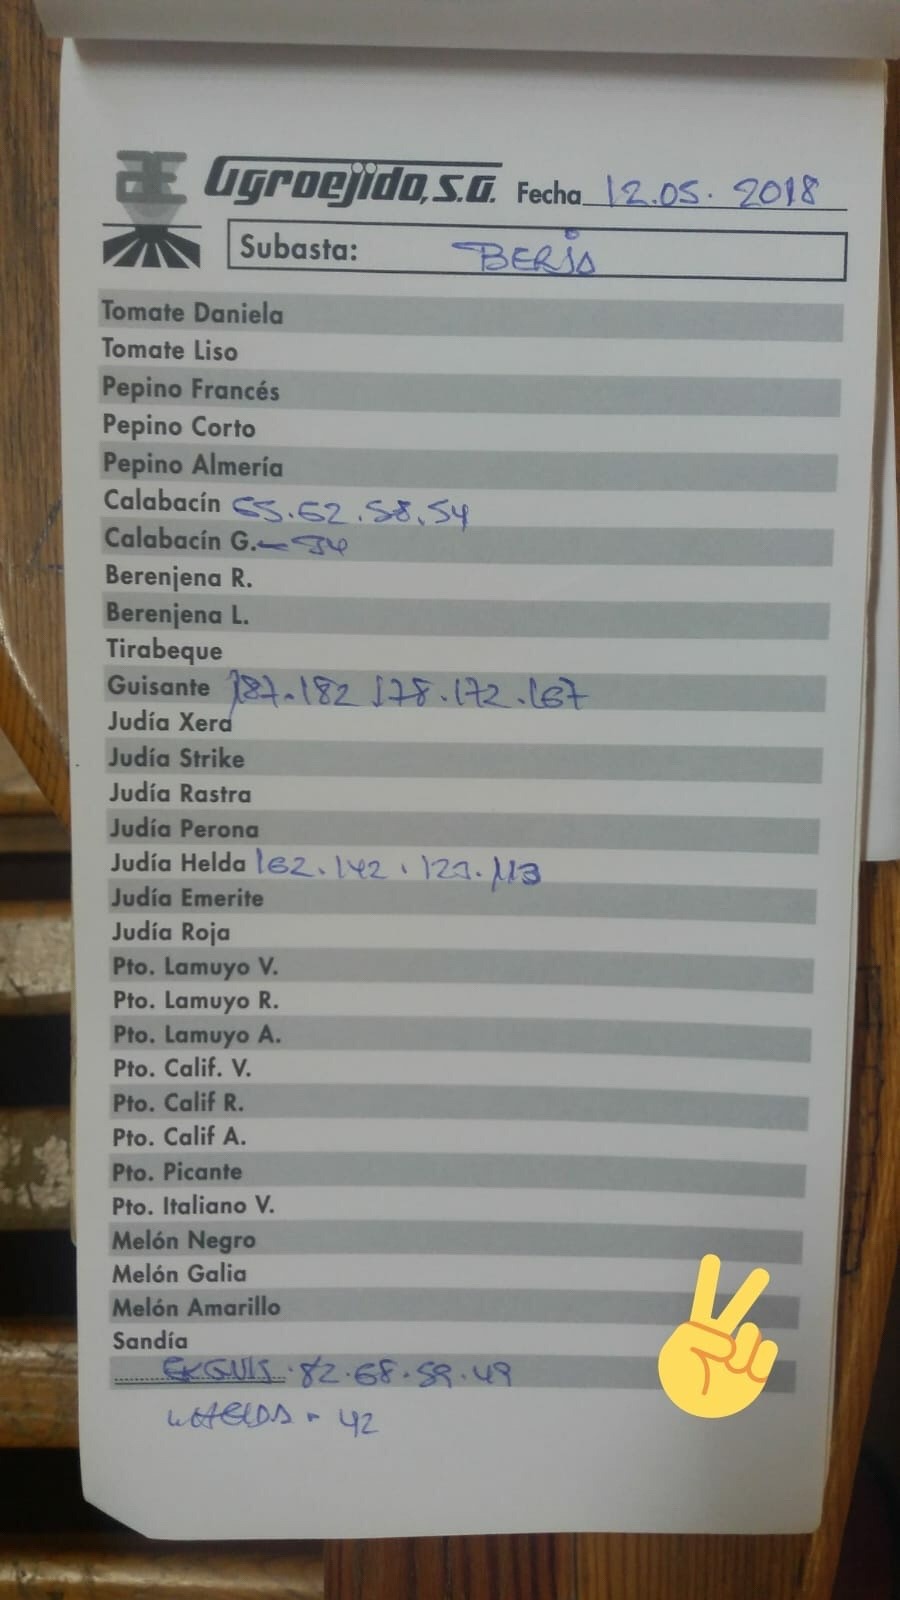 Agroejido, S.A. Fecha 12.05.2018
Subasta: BERJA
Tomate Daniela
Tomate Liso
Pepino Francés
Pepino Corto
Pepino Almería
Calabacín 65.62.58.54
Calabacín G.- 34
Berenjena R.
Berenjena L.
Tirabeque
Guisante 187.182.178.172.167
Judía Xera
Judía Strike
Judía Rastra
Judía Perona
Judía Helda 162.142.123.113
Judía Emerite
Judía Roja
Pto. Lamuyo V.
Pto. Lamuyo R.
Pto. Lamuyo A.
Pto. Calif. V.
Pto. Calif R.
Pto. Calif A.
Pto. Picante
Pto. Italiano V.
Melón Negro
Melón Galia
Melón Amarillo
Sandía
82.68.59.49
42